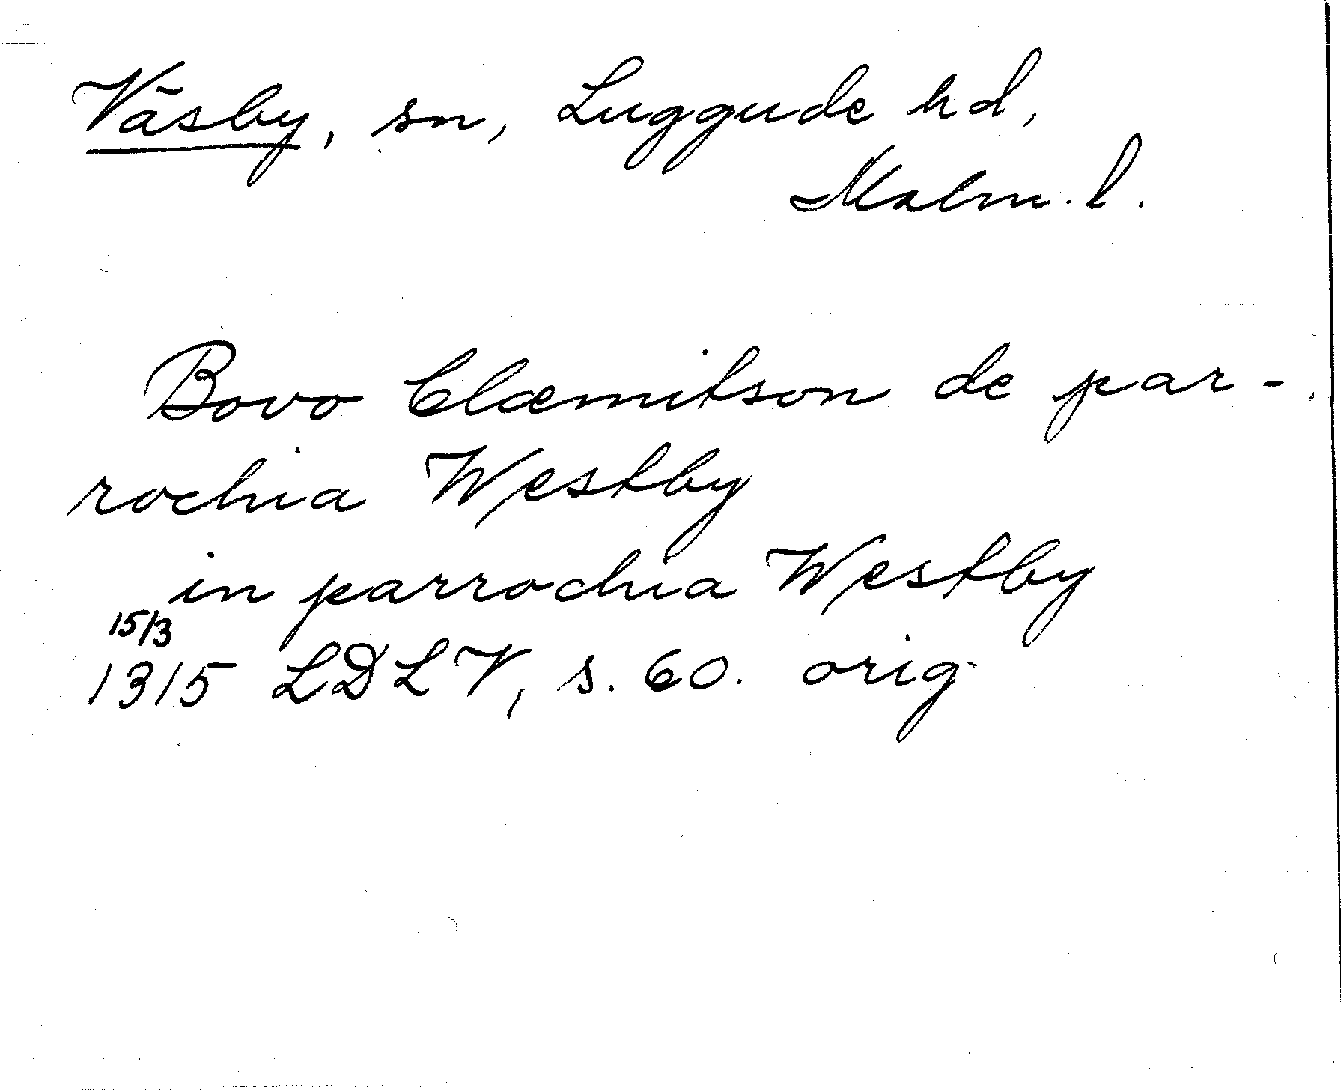 Väsby, sn, Luggude hd,
Malm. l.
Bovo Clæmitson de par-
rochia Westby
in parrochia Westby
15/3
1315 LDLV, s. 60. orig